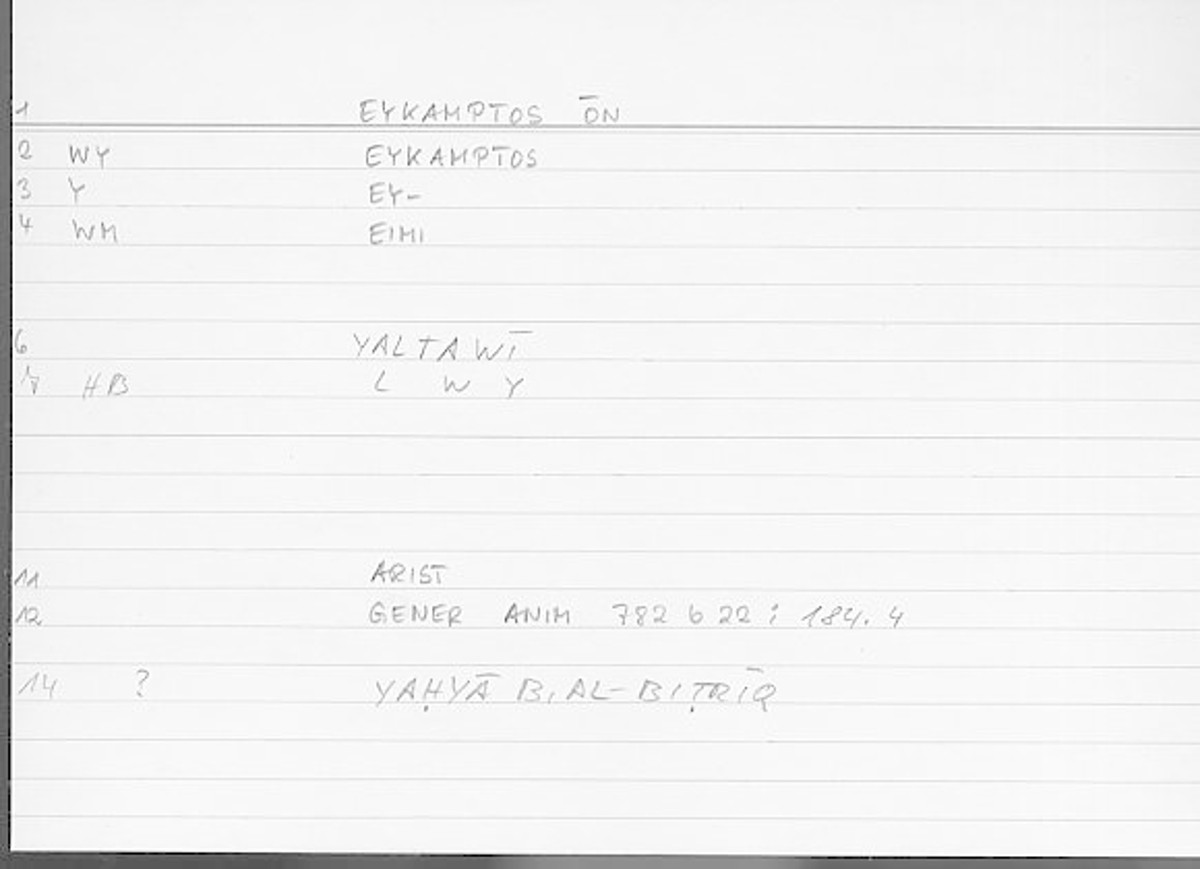 1 EYKAMPTOS ŌN
2 WY EYKAMPTOS
3 Y EY-
4 WM EIMI
6 YALTAWĪ
7 HB L W Y
11 ARIST
12 GENER ANIM 782 b 22 ; 184.4
14 ? YAḤYĀ B. AL-BIṬRĪQ